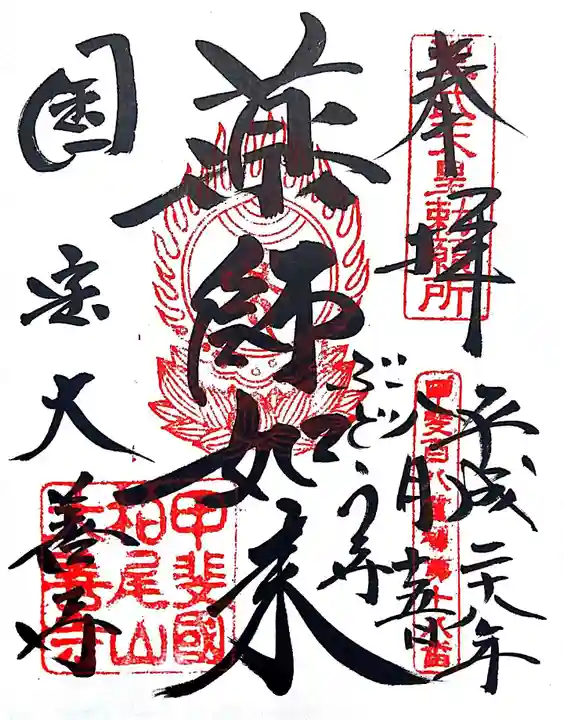 奉拝
平成二十八年
八月十五日
薬師如来
ぶどう寺
国宝大善寺
天皇勅願所
甲斐國
柏尾山
大善寺